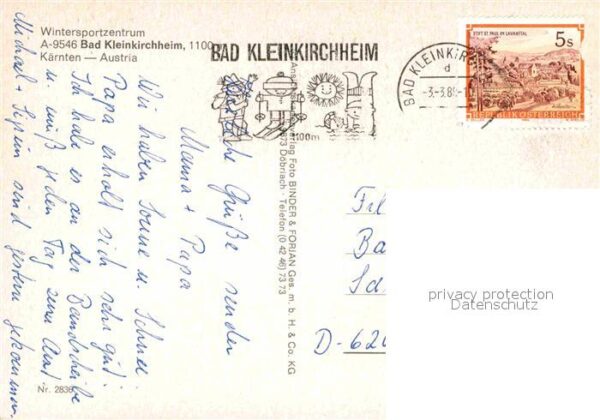 Wintersportzentrum
A-9546 Bad Kleinkirchheim, 1100
Kärnten — Austria
BAD KLEINKIRCHHEIM
1100m
BAD KLEINKIR
d
-3-3.8
STIFT ST. PAUL IM LAVANTTAL
5s
REPUBLIK ÖSTERREICH
Wir haben Sonne u. Schnee.
Papa erholt sich sehr gut!
Ich habe es an der Bandscheibe
u. muß jeden Tag zum Arzt.
Michael + sind gestern gekommen.
Herzliche Grüße senden
Mama + Papa
verlag Foto BINDER & FORIAN Ges. m. b. H. & Co. KG
Döbriach - Telefon (0 42 46) 73 73
Ba
Sd
D-62
Nr. 2836
privacy protection
Datenschutz